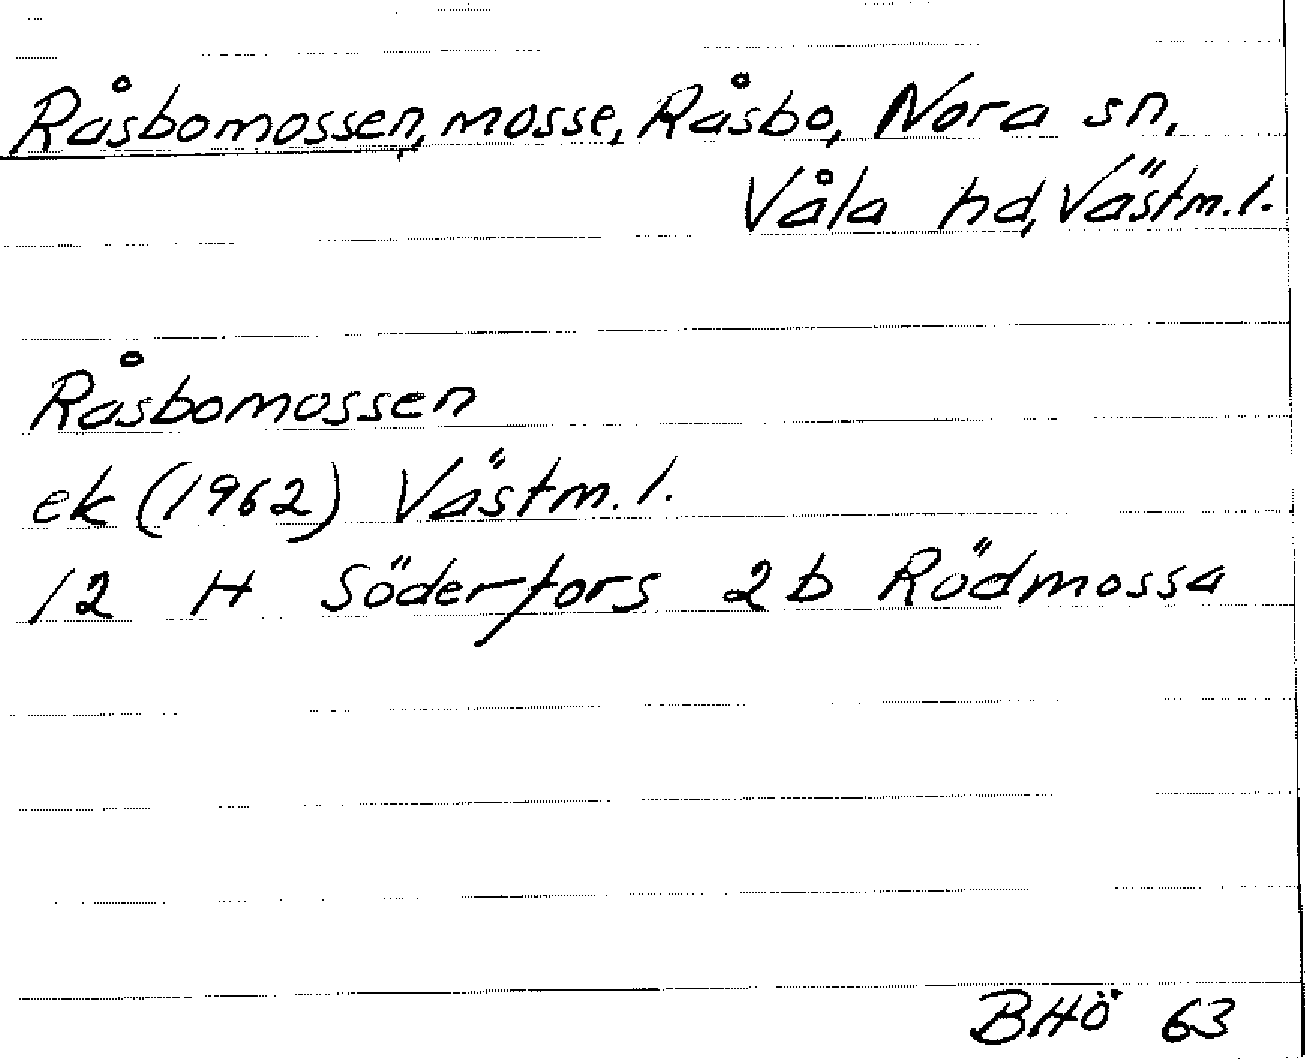 Råsbomossen, mosse, Råsbo, Nora sn,
Våla hd, Västm.l.
Råsbomossen
ek (1962) Västm. l.
12 H Söderfors 2 b Rödmossa
BHö 63